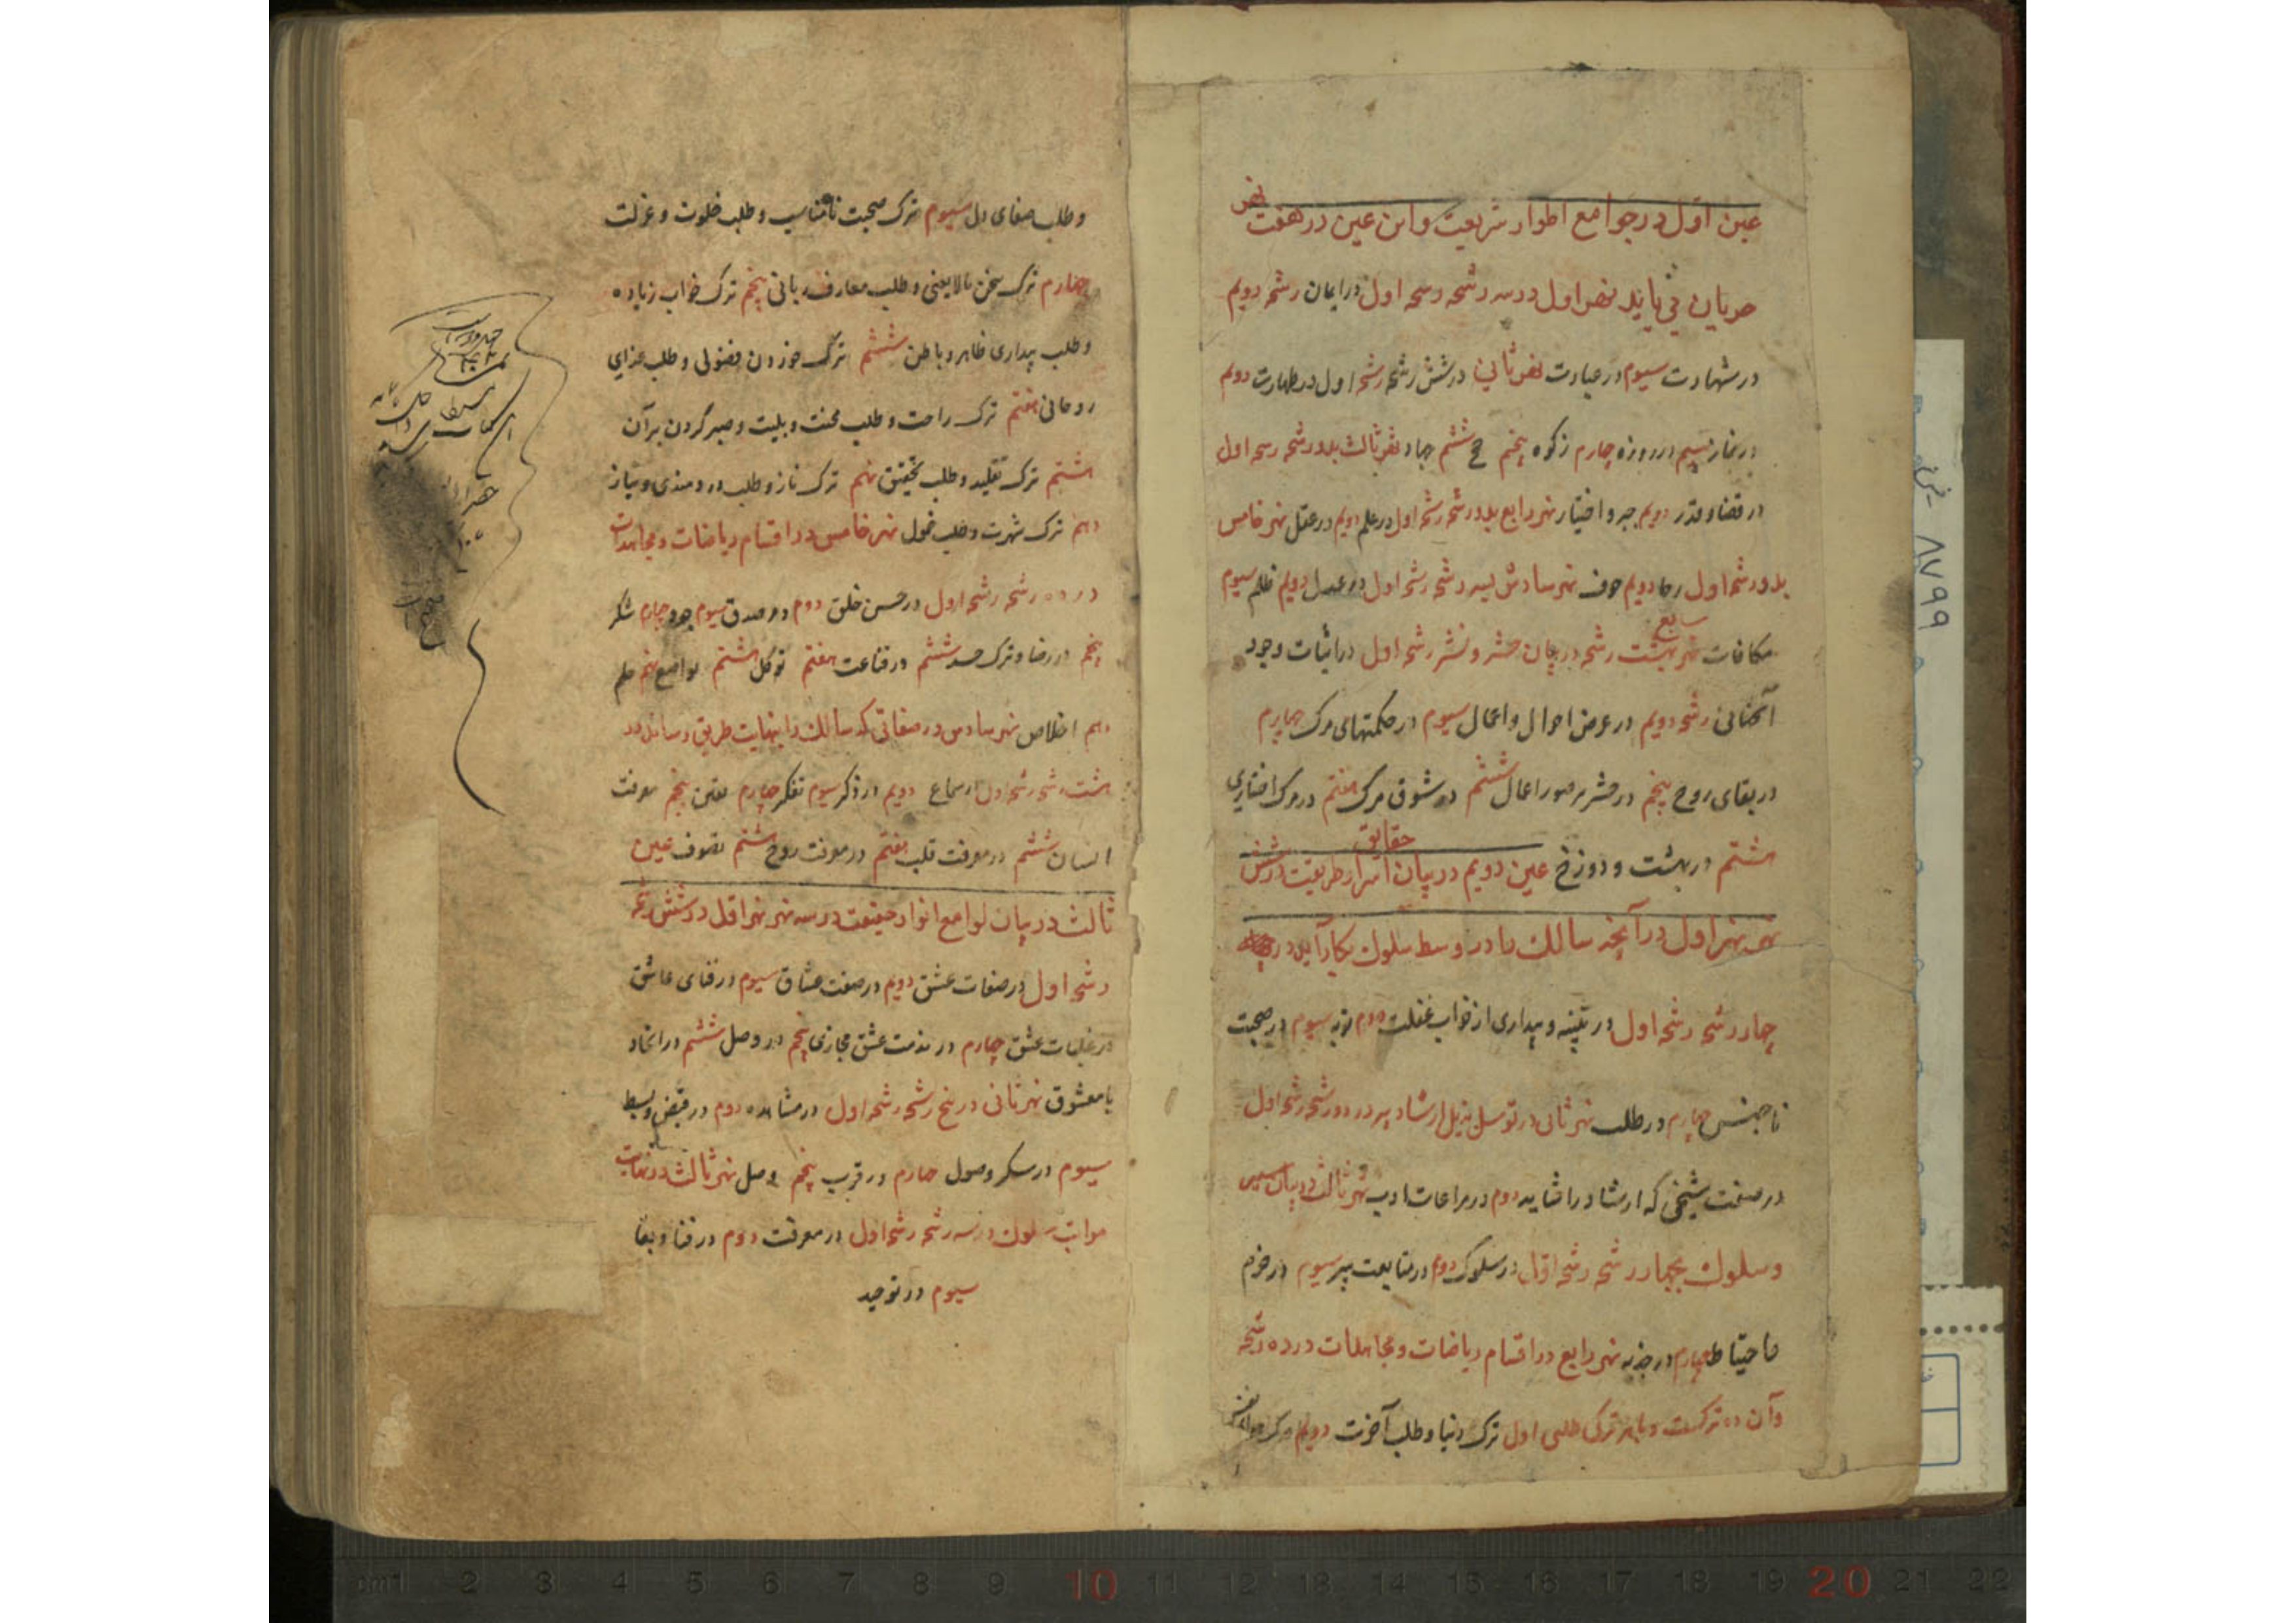 عین اول در جوامع اطوار شریعت و این عین در هفت نهر
جریان می یابد نهر اول در سه رشحه رشحه اول در ایمان رشحه دویم
در شهادت سیوم در عبادت نهر ثانی در شش رشحه رشحه اول در طهارت دویم
در نماز سیم در روزه چهارم زکوه پنجم حج ششم جهاد نهر ثالث بدو رشحه رشحه اول
در قضا و قدر دویم جبر و اختیار نهر رابع بدو رشحه رشحه اول در علم دویم در عقل نهر خامس
بدو رشحه اول رجا دویم خوف نهر سادس بسه رشحه رشحه اول در عدل دویم ظلم سیوم
مکافات نهر سابع بهشت رشحه در بیان حشر و نشر رشحه اول در اثبات وجود
آنجهانی رشحه دویم در عرض احوال و اعمال سیوم در حکمتهای مرگ چهارم
در بقای روح پنجم در حشر بر صور اعمال ششم در شوق مرگ هفتم در مرگ اختیاری
هشتم در بهشت و دوزخ عین دویم در بیان اسرار حقایق طریقت در شش
نهر نهر اول در آنچه سالک را در وسط سلوک بکار آید در
چهار رشحه رشحه اول در تنبیه و بیداری از خواب غفلت دوم توبه سیوم در صحبت
ناجنس چهارم در طلب نهر ثانی در توسل بذیل ارشاد پیر در دو رشحه رشحه اول
در صفت شیخی که ارشاد را شاید دوم در مراعات ادب نهر ثالث در بیان سیر
و سلوک بچهار رشحه رشحه اول در سلوک دوم در متابعت پیر سیوم در حزم
و احتیاط چهارم در جذبه نهر رابع در اقسام ریاضات و مجاهدات در ده رشحه
و آن ده ترکست و با هر ترکی طلبی اول ترک دنیا و طلب آخرت دویم ترک هوای نفس
و طلب صفای دل سیوم ترک صحبت نامناسب و طلب خلوت و عزلت
چهارم ترک سخن مالایعنی و طلب معارف ربانی پنجم ترک خواب زیاده
و طلب بیداری ظاهر و باطن ششم ترک خوردن فضولی و طلب غذای
روحانی هفتم ترک راحت و طلب محنت و بلیت و صبر کردن بر آن
هشتم ترک تقلید و طلب تحقیق نهم ترک ناز و طلب دردمندی و نیاز
دهم ترک شهرت و طلب خمول نهر خامس در اقسام ریاضات و مجاهدات
در ده رشحه رشحه اول در حسن خلق دوم در صدق سیوم جود چهارم شکر
پنجم در رضا و ترک حسد ششم در قناعت هفتم توکل هشتم تواضع نهم حلم
دهم اخلاص نهر سادس در صفاتی که سالک را بنهایت طریق رساند در
هشت رشحه رشحه اول سماع دویم در ذکر سیوم تفکر چهارم یقین پنجم معرفت
انسان ششم در معرفت قلب هفتم در معرفت روح هشتم تصوف عین
ثالث در بیان لوامع انوار حقیقت در سه نهر نهر اول در شش رشحه
رشحه اول در صفات عشق دویم در صفت عشاق سیوم در فنای عاشق
در غلبات عشق چهارم در مذمت عشق مجازی پنجم در وصل ششم در اتحاد
با معشوق نهر ثانی در پنج رشحه رشحه اول در مشاهده دوم در قبض و بسط
سیوم در سکر و صول چهارم در قرب پنجم وصل نهر ثالث در نهایت
مراتب سلوک در سه رشحه رشحه اول در معرفت دوم در فنا و بقا
سیوم در توحید
۸۷۹۹
cm 1 2 3 4 5 6 7 8 9 10 11 12 13 14 15 16 17 18 19 20 21 22